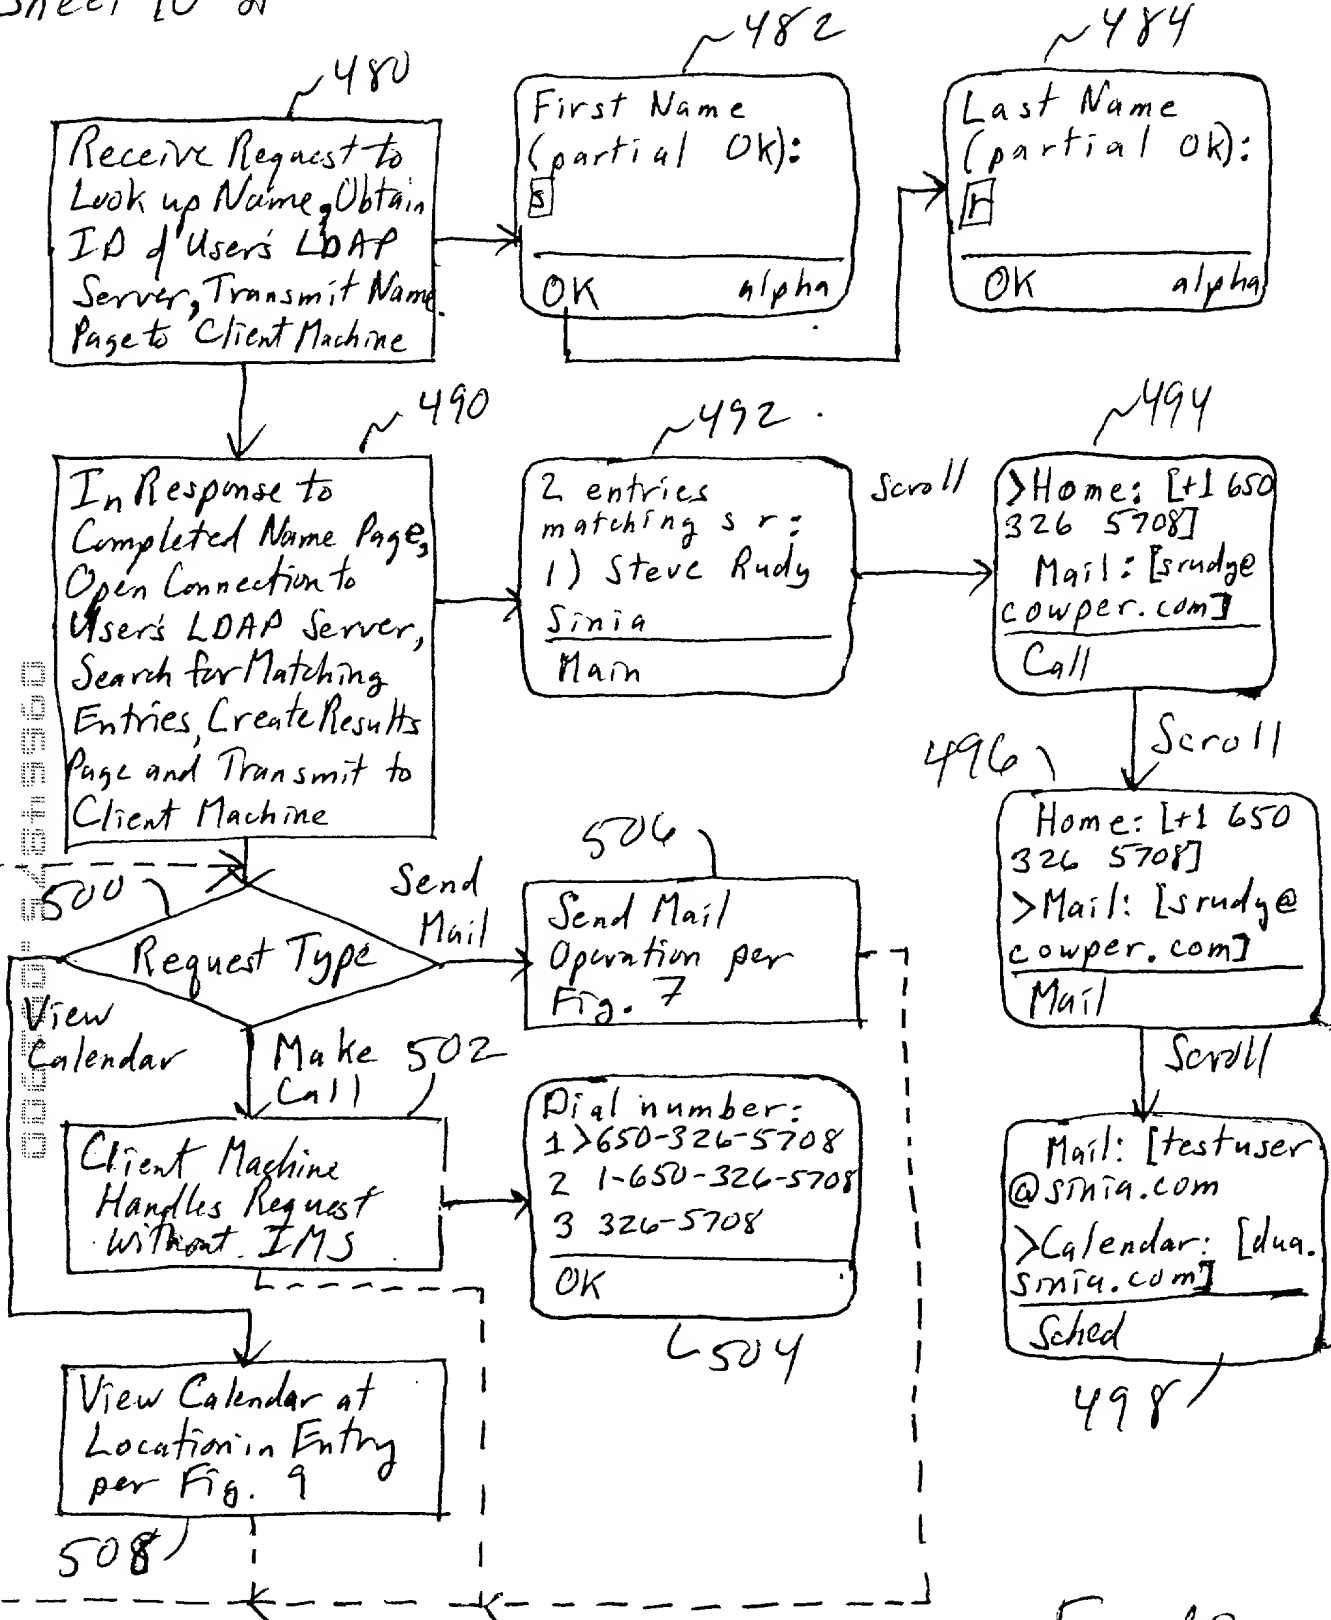 Sheet 10 of
480
Receive Request to
Look up Name, Obtain
ID of User's LDAP
Server, Transmit Name
Page to Client Machine
482
First Name
(partial OK):
s
OK alpha
484
Last Name
(partial OK):
r
OK alpha
490
In Response to
Completed Name Page,
Open Connection to
User's LDAP Server,
Search for Matching
Entries, Create Results
Page and Transmit to
Client Machine
492
2 entries
matching s r:
1) Steve Rudy
Sinia
Main
Scroll
494
>Home: [+1 650
326 5708]
Mail: [srudy@
cowper.com]
Call
Scroll
496
Home: [+1 650
326 5708]
>Mail: [srudy@
cowper.com]
Mail
Scroll
Mail: [testuser
@sinia.com
>Calendar: [dua.
sinia.com]
Sched
498
500
Request Type
Send
Mail
506
Send Mail
Operation per
Fig. 7
View
Calendar
Make
Call
502
Client Machine
Handles Request
Without IMS
Dial number:
1>650-326-5708
2 1-650-326-5708
3 326-5708
OK
504
View Calendar at
Location in Entry
per Fig. 9
508